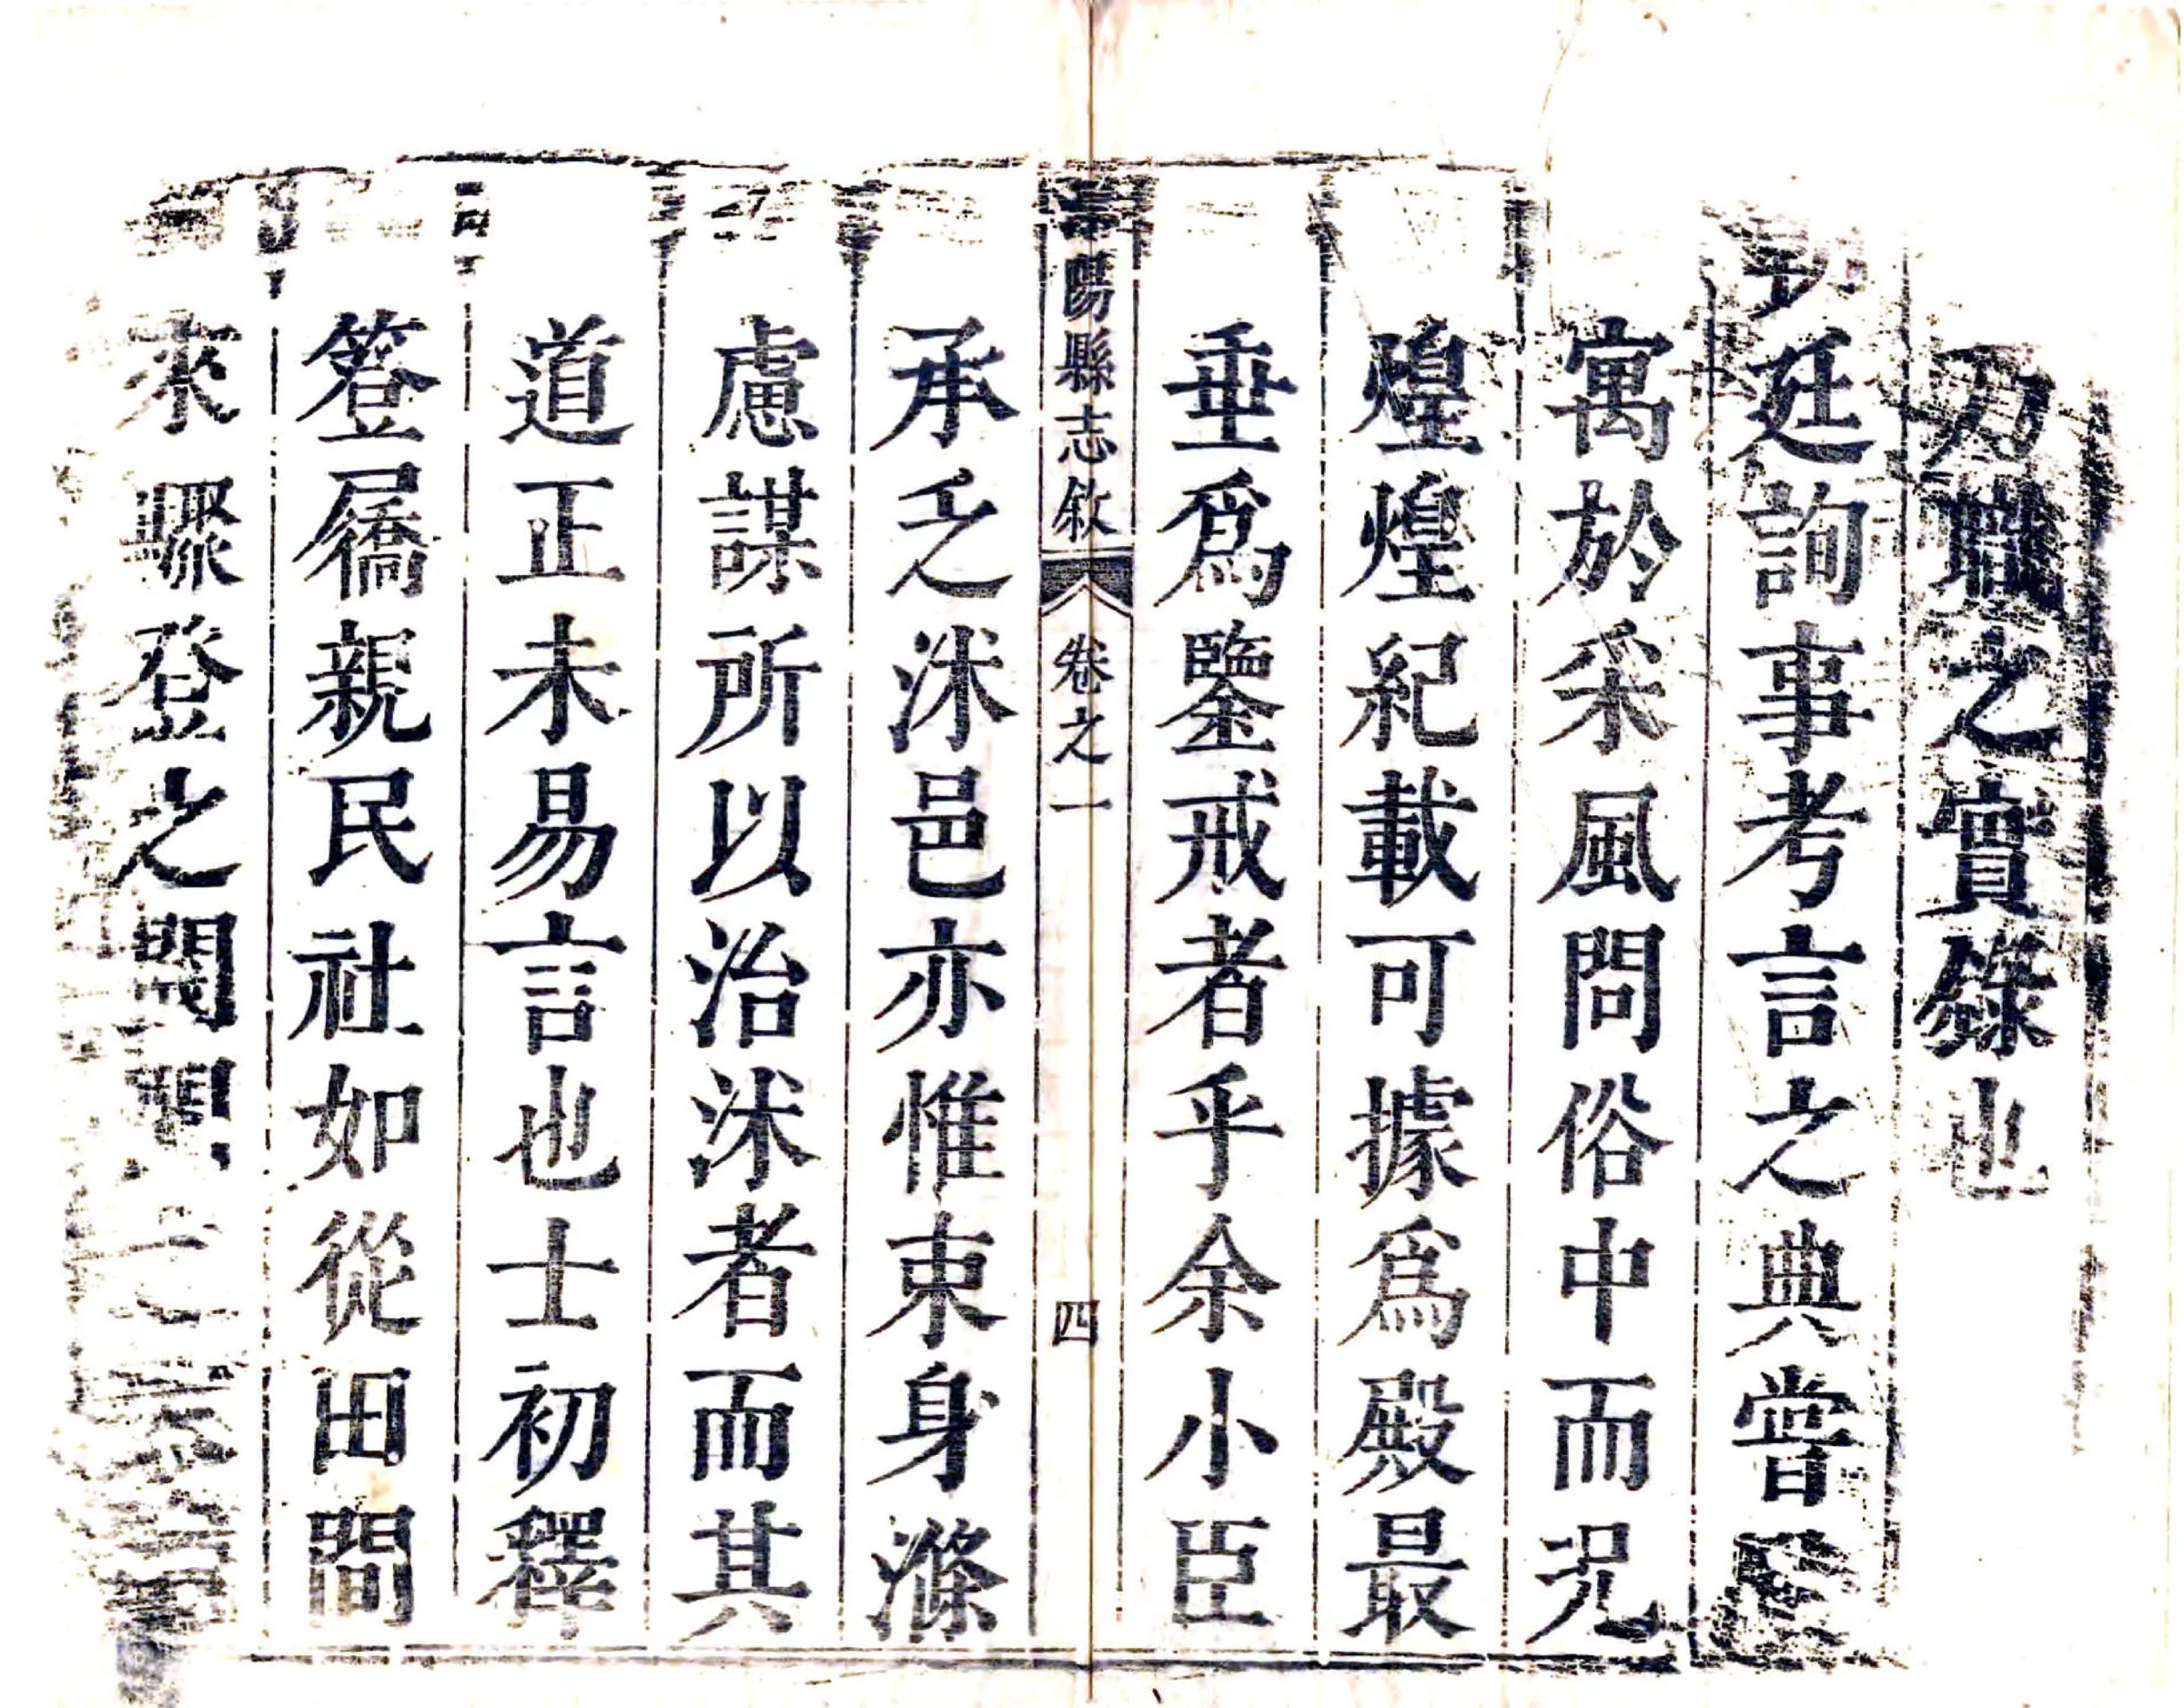 乃職之實錄也
廷詢事考言之典嘗
寓於采風問俗中而况
煌煌紀載可據爲殿最
垂爲鑒戒者乎余小臣
陽縣志敘 卷之一 四
承乏沭邑亦惟束身滌
慮謀所以治沭者而其
道正未易言也士初釋
簦屩親民社如從田間
來驟登之